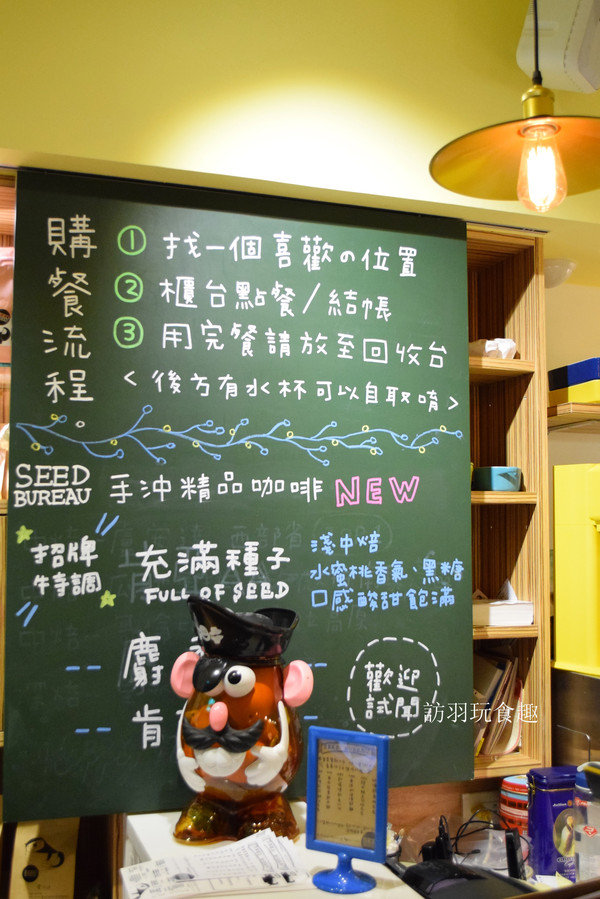 購餐流程
① 找一個喜歡の位置
② 櫃台點餐/結帳
③ 用完餐請放至回收台
< 後方有水杯可以自取唷 >
SEED BUREAU 手沖精品咖啡 NEW
招牌特調
充滿種子
FULL OF SEED
淺中焙
水蜜桃香氣、黑糖
口感酸甜飽滿
麝
肯
歡迎試聞
訪羽玩食趣